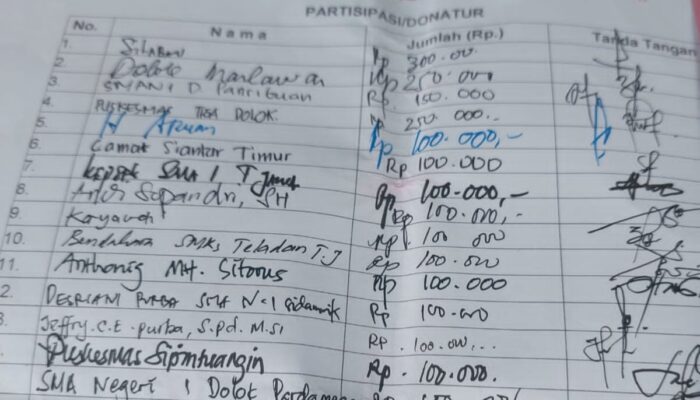 PARTISIPASI/DONATUR
No. Nama Jumlah (Rp.) Tanda Tangan
1. Silaban Rp 300.00
2. Dolok Marlawan Rp 250.000
3. SMAN 1 D. Panribuan Rp. 150.000
4. PUSKESMAS TIGA DOLOK Rp 250 000
5. H Rp 100.000,-
6. Camat Siantar Timur Rp 100.000
7. SMA 1 T Jawa Rp 100.000,-
8. Andi Sopandri, SH Rp 100.000,-
9. Rp 100 000
10. Bendahara SMKS Teladan T.J Rp 100.000
11. MH. Sitorus Rp 100.000
2 DESRIANI PURBA SMA N-1 Sidamanik Rp 100.000
Jeffry.C.E.purba, S.pd. M.Si Rp. 100.000
Puskesmas Rp. 100.000.
SMA Negeri 1 Dolok